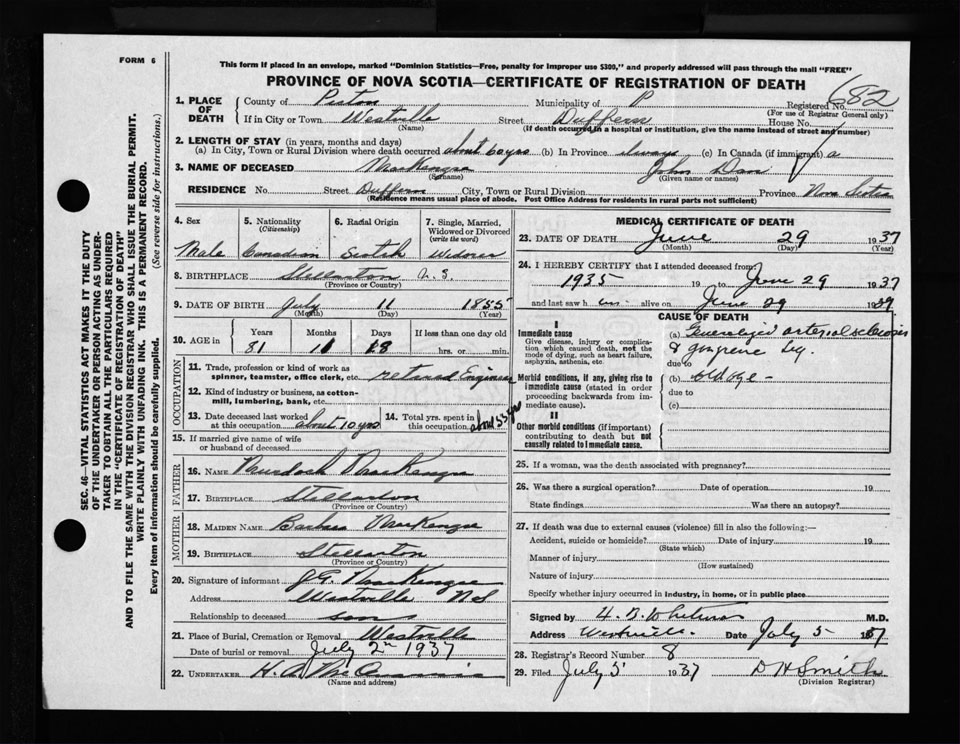 FORM 6
This form if placed in an envelope, marked "Dominion Statistics—Free, penalty for improper use $300," and properly addressed will pass through the mail "FREE"
PROVINCE OF NOVA SCOTIA—CERTIFICATE OF REGISTRATION OF DEATH
682
1. PLACE OF DEATH { County of Pictou Municipality of P Registered No.
(For use of Registrar General only)
If in City or Town Westville Street Dufferin House No.
(Name) (If death occurred in a hospital or institution, give the name instead of street and number)
2. LENGTH OF STAY (in years, months and days)
(a) In City, Town or Rural Division where death occurred about 60 yrs (b) In Province always (c) In Canada (if immigrant) a
3. NAME OF DECEASED MacKenzie John Dan
(Surname) (Given name or names)
RESIDENCE No. Street Dufferin City, Town or Rural Division Province Nova Scotia
(Residence means usual place of abode. Post Office Address for residents in rural parts not sufficient)
4. Sex 5. Nationality (Citizenship) 6. Racial Origin 7. Single, Married, Widowed or Divorced (write the word)
Male Canadian Scotch Widower
8. BIRTHPLACE Stellarton N.S.
(Province or Country)
9. DATE OF BIRTH July 11 1855
(Month) (Day) (Year)
10. AGE in { Years Months Days If less than one day old
81 11 18 hrs. or min.
OCCUPATION
11. Trade, profession or kind of work as spinner, teamster, office clerk, etc. retired Engineer
12. Kind of industry or business, as cotton-mill, lumbering, bank, etc.
13. Date deceased last worked at this occupation about 10 yrs
14. Total yrs. spent in this occupation about 55 yrs
15. If married give name of wife or husband of deceased
FATHER
16. NAME Murdoch MacKenzie
17. BIRTHPLACE Stellarton
MOTHER
18. MAIDEN NAME Barbara MacKenzie
19. BIRTHPLACE Stellarton
(Province or Country)
20. Signature of informant J G MacKenzie
Address Westville N S
Relationship to deceased son
21. Place of Burial, Cremation or Removal Westville
Date of burial or removal July 2nd 1937
22. UNDERTAKER H. A.
(Name and address)
MEDICAL CERTIFICATE OF DEATH
23. DATE OF DEATH June 29 1937
(Month) (Day)
24. I HEREBY CERTIFY that I attended deceased from
1935 19 to June 29 1937
and last saw h im alive on June 29 1939
CAUSE OF DEATH
I
Immediate cause
Give disease, injury or complication which caused death, not the mode of dying, such as heart failure, asphyxia, asthenia, etc.
(a) Generalized arterial sclerosis
& gangrene leg.
due to
Morbid conditions, if any, giving rise to immediate cause (stated in order proceeding backwards from immediate cause).
(b) old age -
due to
(c)
II
Other morbid conditions (if important) contributing to death but not causally related to immediate cause.
25. If a woman, was the death associated with pregnancy?
26. Was there a surgical operation? Date of operation 19
State findings Was there an autopsy?
27. If death was due to external causes (violence) fill in also the following:—
Accident, suicide or homicide? Date of injury 19
(State which)
Manner of injury
(How sustained)
Nature of injury
Specify whether injury occurred in industry, in home, or in public place
Signed by M.D.
Address Westville. Date July 5 1937
28. Registrar's Record Number 8
29. Filed July 5 1937 D H Smith
(Division Registrar)
SEC. 46—VITAL STATISTICS MAKES IT THE DUTY
OF THE UNDERTAKER OR PERSON ACTING AS UNDER-
TAKER TO OBTAIN ALL THE PARTICULARS REQUIRED
IN THE "CERTIFICATE OF REGISTRATION OF DEATH"
AND TO FILE THE SAME WITH THE DIVISION REGISTRAR WHO SHALL ISSUE THE BURIAL PERMIT.
WRITE PLAINLY WITH UNFADING INK. THIS IS A PERMANENT RECORD.
Every item of information should be carefully supplied. (See reverse side for instructions.)